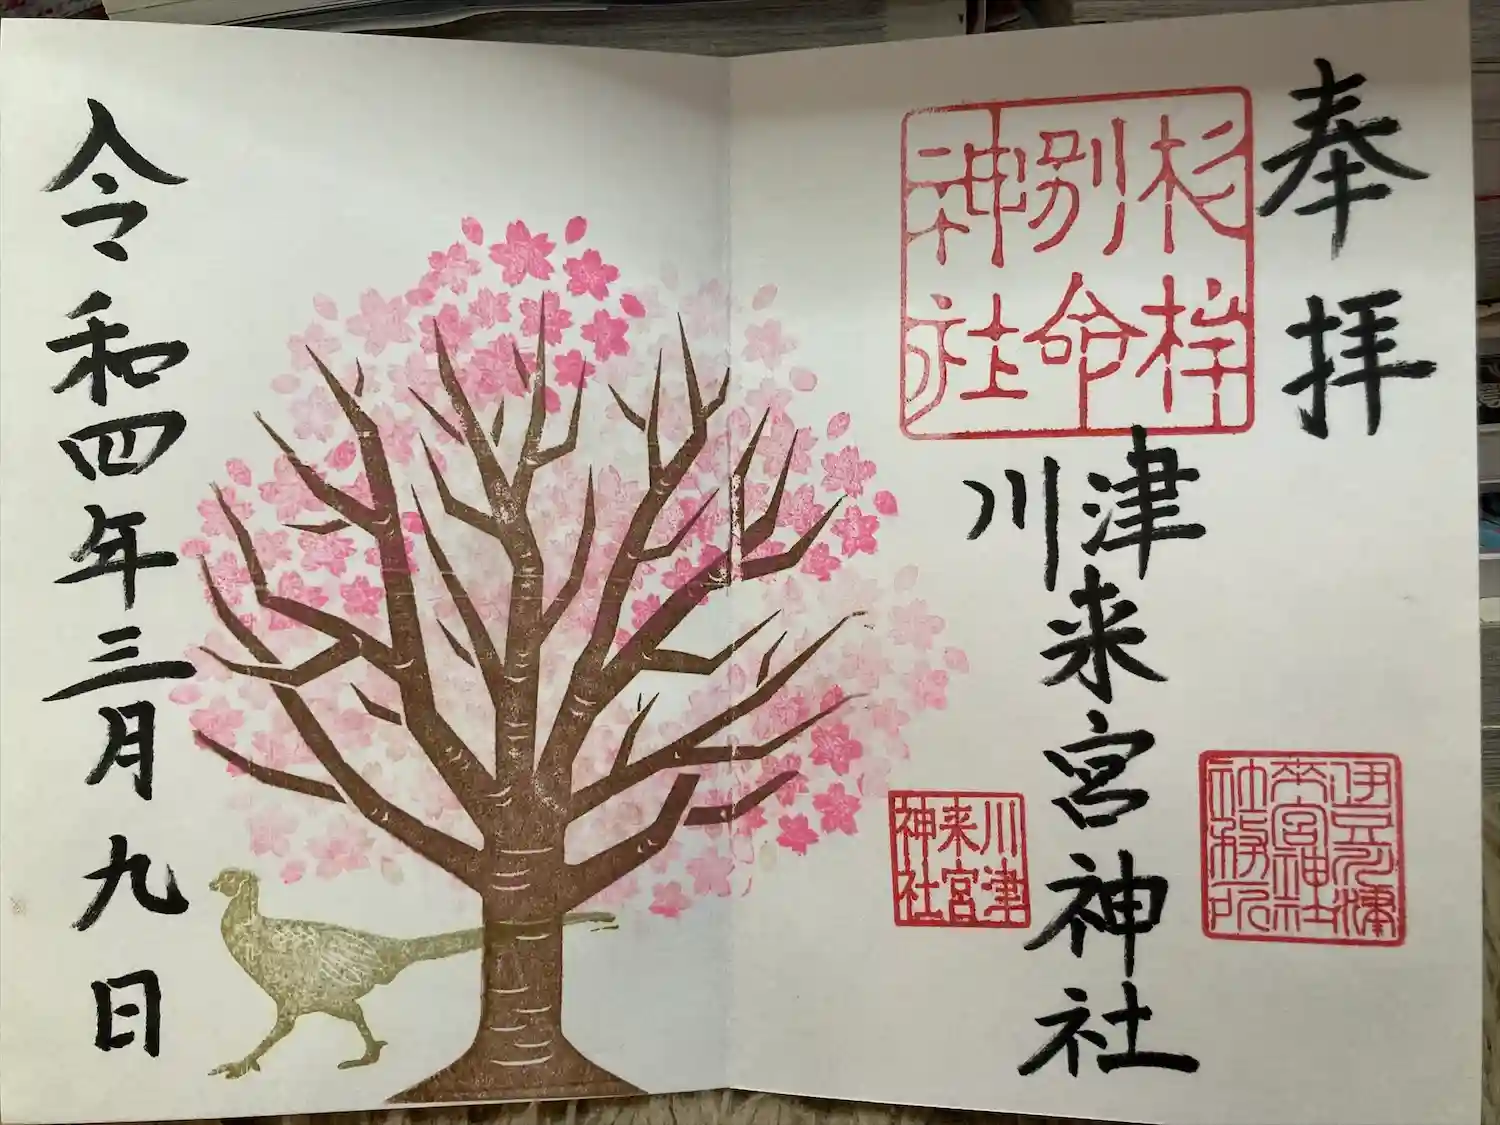 奉拝
杉桙
別命
神社
川津来宮神社
伊豆河津
来宮神社
社務所
川津
来宮
神社
令和四年三月九日